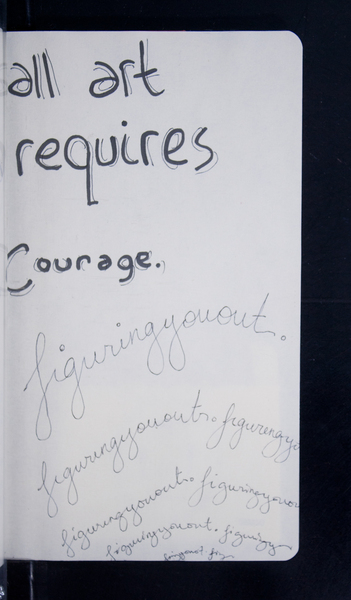 all art
requires
Courage.
figuringyouout.
figuringyouout. figuringyo
figuringyouout. figuringyouou
figuringyouout. figuringy